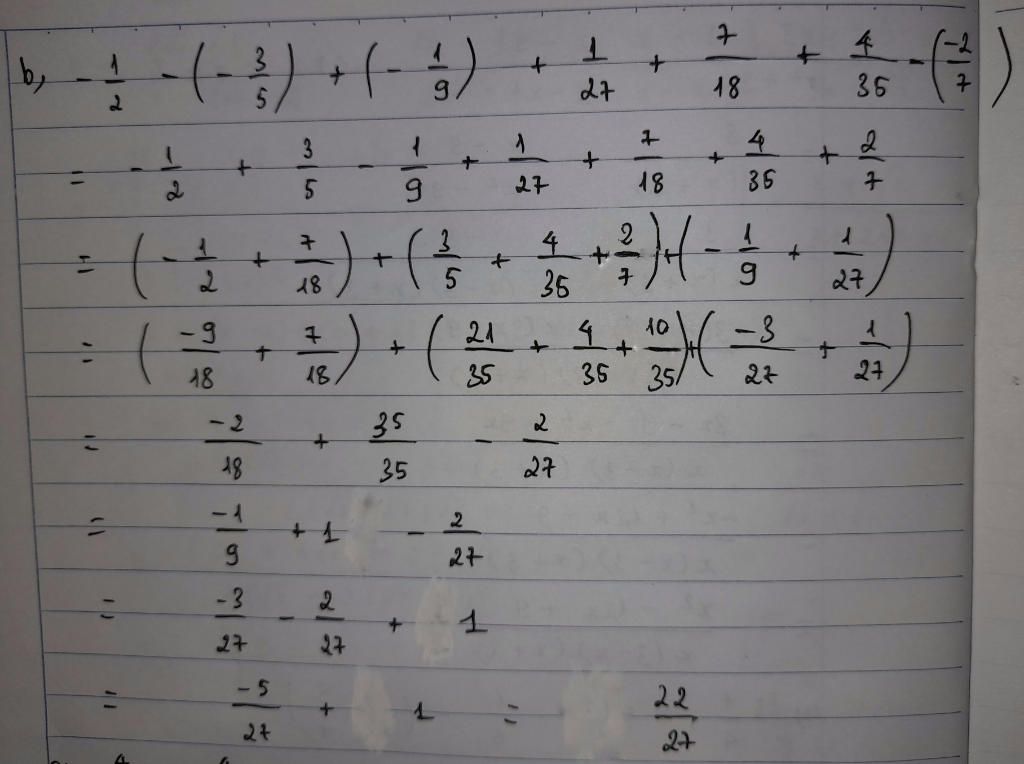 b, - 1/2 - (- 3/5) + (- 1/9) + 1/27 + 7/18 + 4/35 - (-2/7)
= - 1/2 + 3/5 - 1/9 + 1/27 + 7/18 + 4/35 + 2/7
= (- 1/2 + 7/18) + (3/5 + 4/35 + 2/7) + (- 1/9 + 1/27)
= (-9/18 + 7/18) + (21/35 + 4/35 + 10/35) + (-3/27 + 1/27)
= -2/18 + 35/35 - 2/27
= -1/9 + 1 - 2/27
= -3/27 - 2/27 + 1
= -5/27 + 1 = 22/27